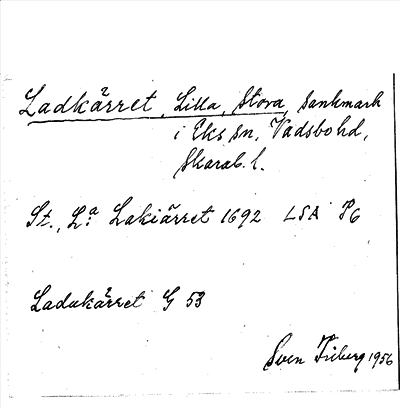 Ladkärret, Lilla, Stora, sankmark
i Eks sn, Vadsbo hd,
Skarab. l.
St., L:a Lakiärret 1692 LSA P6
Ladukärret G 53
Sven Friberg 1956